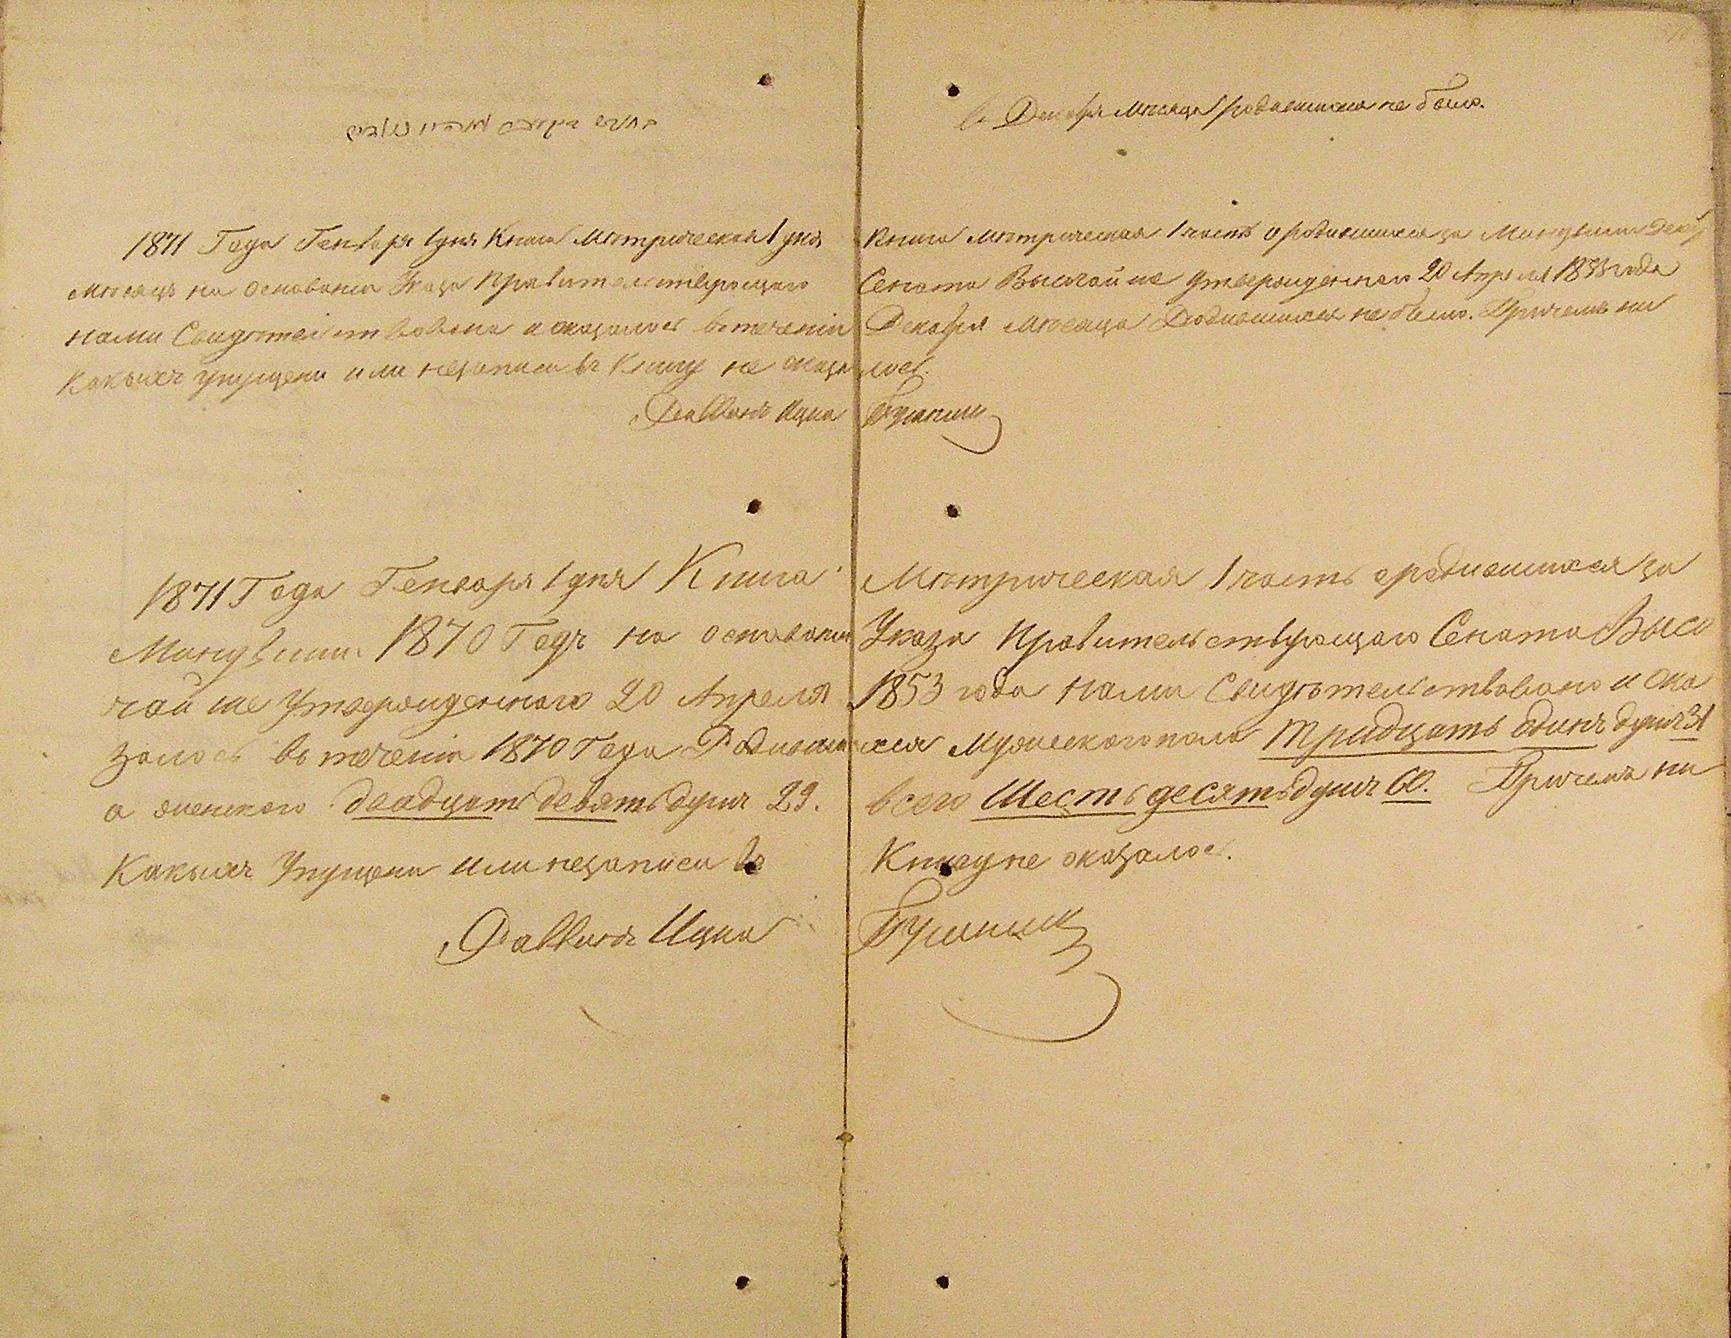 в Декабря месяца родившихся не было.
1871 Года Генваря 1 дня Книга Метрическая 1 Книга Метрическая 1 часть о родившихся за Минувший Декаб
месяцъ на основании Указа Правительствующаго Сената Высочайше Утвержденнаго 20 Апреля 1853 года
нами Свидѣтельствована и оказалось въ течении Декабря Месяца Родившихся небыло. Причемъ ни
Какихъ упущени или незаписи въ Книгу не оказалось.
Давидъ Ицка
1871 Года Генваря 1 дня Книга Метрическая 1 часть о родившихся за
Минувший 1870 Годъ на основании Указа Правительствующаго Сената Высо
чайше Утвержденного 20 Апреля 1853 года нами Свидѣтельствовано и ока
залось въ течении 1870 Года Родившихся Мужескаго пола Тридцать одинъ душъ 31
а женского двадцать девять душъ 29. всего Шестьдесятъ душъ 60. Причемъ ни
Какихъ Упущени или незаписи въ Книгу не оказалось.
Давидъ Ицка